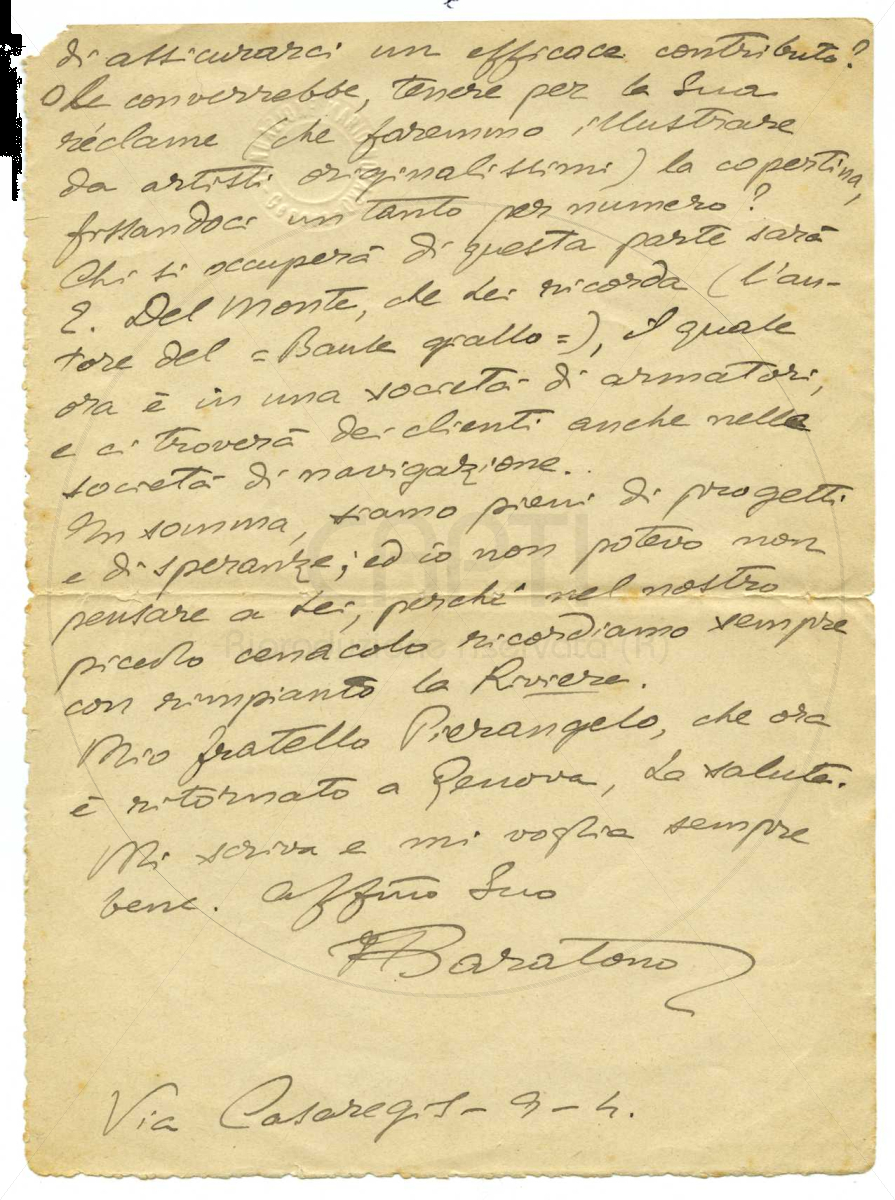 di assicurarci un efficace contributo?
O Le converrebbe, tenere per la Sua
réclame (che faremmo illustrare
da artisti originalissimi) la copertina,
fissandoci un tanto per numero?
Chi si occuperà di questa parte sarà
E. Del Monte, che Lei ricorda (l'au-
tore del =Baule giallo=), il quale
ora è in una società di armatori,
e ci troverà dei clienti anche nelle
società di navigazione..
In somma, siamo pieni di progetti
e di speranze; ed io non potevo non
pensare a Lei, perchè nel nostro
piccolo cenacolo ricordiamo sempre
con rimpianto la Riviere.
Mio fratello Pierangelo, che ora
è ritornato a Genova, La saluta.
Mi scriva e mi voglia sempre
bene. Affmo Suo
Baratono
Via Casaregis - 9 - 4.
CAPTI
Riproduzione riservata (R)